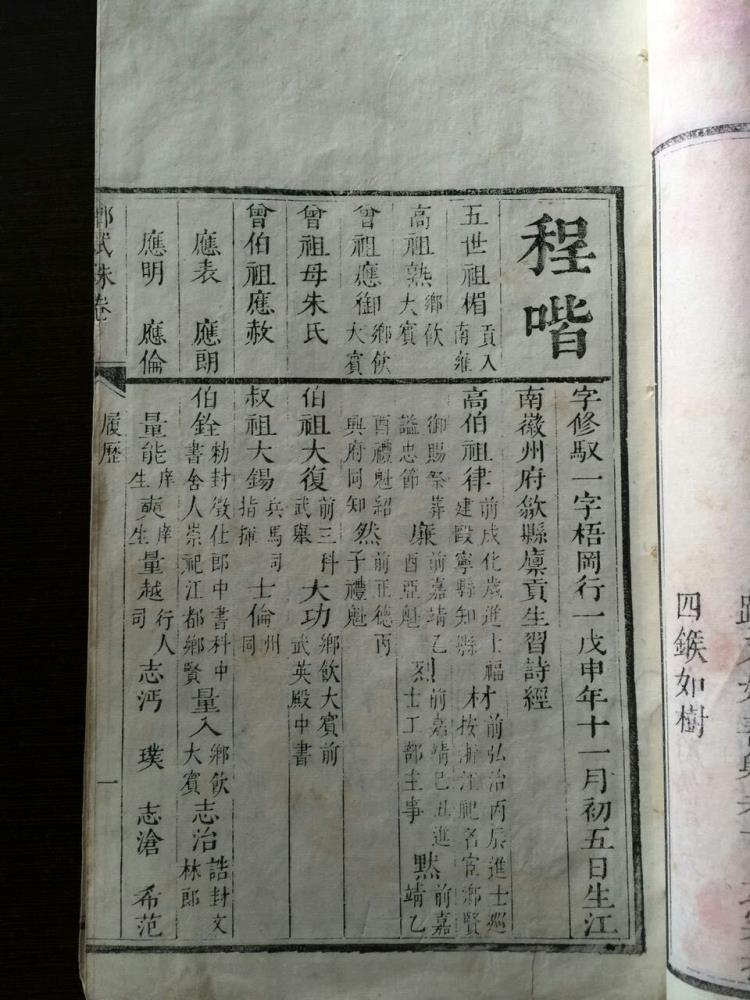 程喈
字修馭一字梧岡行一戊申年十一月初五日生江
南徽州府歙縣廩貢生習詩經
五世祖楣貢入南雍
高伯祖律前成化歲進士福建毆寧縣知縣
材前弘治丙辰進士巡按浙江祀名宦鄉賢
高祖熟鄉飲大賓
御賜祭葬謚忠節
廉前嘉靖乙酉亞魁
烈前嘉靖己丑進士工部主事
默前嘉靖乙
曾祖應御鄉飲大賓
酉禮魁紹興府同知
然前正德丙子禮魁
曾祖母朱氏
伯祖大復前三科武舉
大功鄉飲大賓前武英殿中書
曾伯祖應赦
叔祖大錫兵馬司指揮
士倫州同
應表 應朗
伯銓勅封徵仕郎中書科中書舍人崇祀江都鄉賢
量入鄉飲大賓
志治誥封文林郎
應明 應倫
量能庠生
奭庠生
量越行人司
志沔 璞 志滄 希范
鄉試硃卷
履歷
一
四鍭如樹